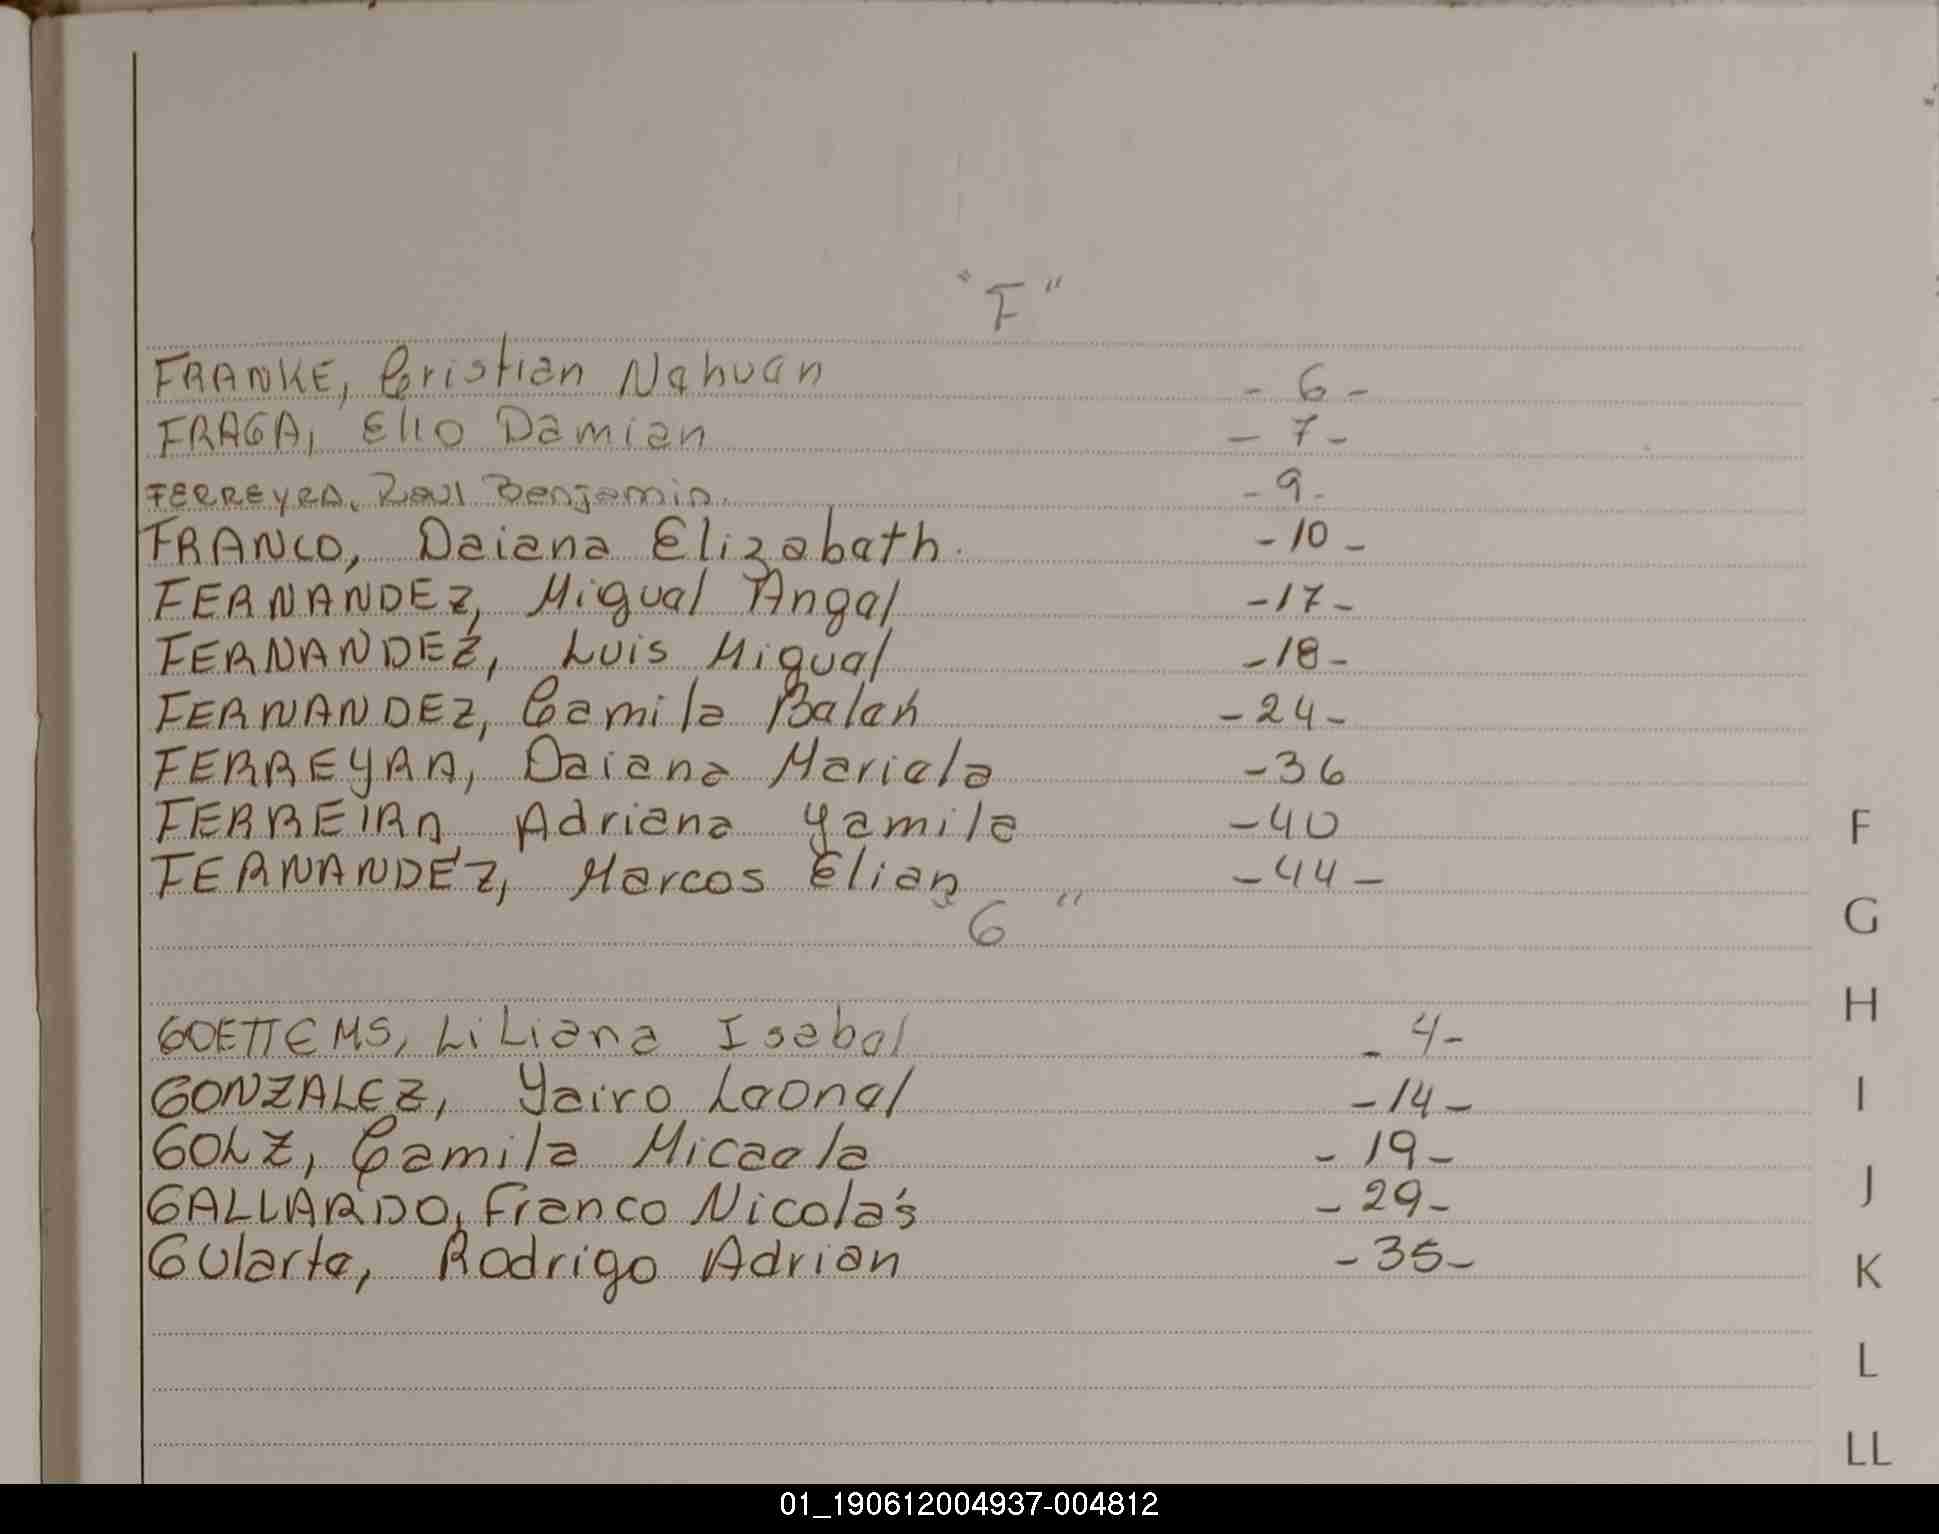 "F"
FRANKE, Cristian Nahuan - 6 -
FRAGA, Elio Damian - 7 -
FERREYRA, Raul Benjamin. - 9 -
FRANCO, Daiana Elizabeth. - 10 -
FERNANDEZ, Miguel Angel - 17 -
FERNANDEZ, Luis Miguel - 18 -
FERNANDEZ, Camila Belen - 24 -
FERREYRA, Daiana Mariela - 36
FERREIRA, Adriana Yamile - 40
FERNANDEZ, Marcos Elian - 44 -
"G"
GOETTEMS, Liliana Isabel - 4 -
GONZALEZ, Yairo Leonel - 14 -
GOLZ, Camila Micaela - 19 -
GALLARDO, Franco Nicolás - 29 -
Gularte, Rodrigo Adrian - 35 -
F
G
H
I
J
K
L
LL
01_190612004937-004812